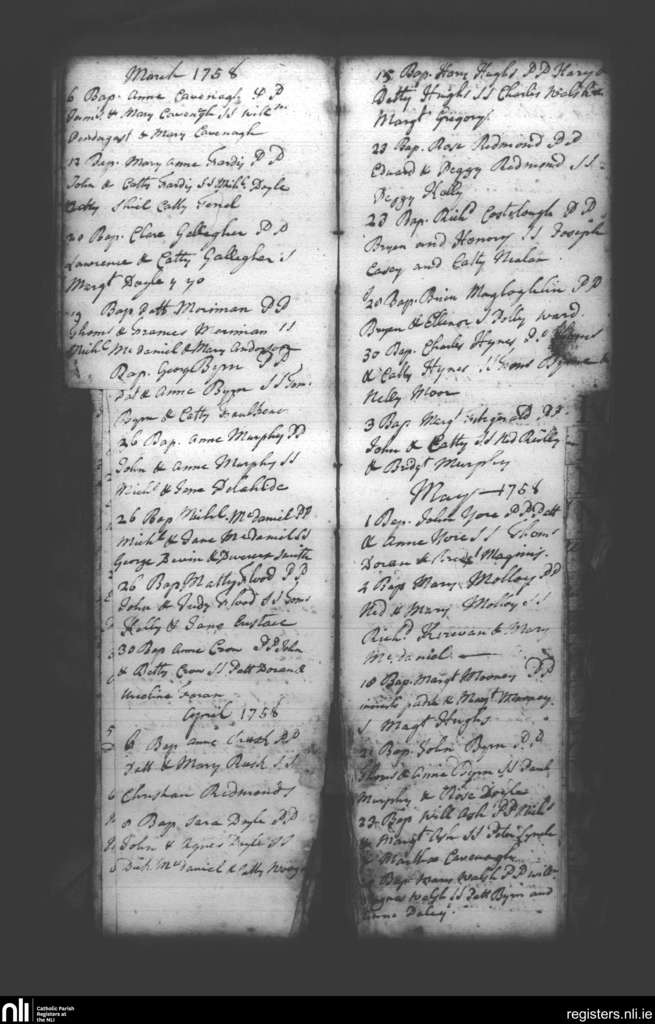 March 1758
6 Bap. Anne Cavenagh P P
James & Mary Cavenagh SS Willm
Pendergast & Mary Cavenagh
12 Bap. Mary Anne P P
John & Catty SS Michl Doyle
Betty Shiel Catty
20 Bap. Clare Gallegher P P
Lawrence & Catty Gallagher S
Margt Doyle
19 Bap Patt Moriman P P
Thoms & Frances Morinian SS
Michl McDaniel & Mary Anderson
Bap. George Byrn P P
Pat & Anne Byrn SS
Byrn & Catty
26 Bap. Anne Murphy PP
John & Anne Murphy SS
Michl & Jane Delahide
26 Bap Michl McDaniel PP
Michl & Jane McDaniel SS
George Devin & Smith
26 Bap Matty Flood P P
John & Judy Flood SS Thoms
Kelly & Jane Eustace
30 Bap Anne Crow P P John
& Betty Crow SS Patt Doran &
Foran
April 1758
6 Bap anne P P
Patt & Mary Rush SS
Christian Redmonds
8 Bap. Sara Doyle P P
John & Agnes Doyle SS
Dick McDaniel & Catty
15 Bap. Hary Hughs P P Hary &
Betty Hughs SS Charles Walsh &
Margt Gregory
23 Bap. Rose Redmond P P
Edward & Peggy Redmond SS
Peggy Kelly
23 Bap. Richd Costolough P P
Bryen and Honory SS Joseph
Casey and Catty Nealan
20 Bap. Brien Maglaghlin P P
Bryen & Ellenor S Polly Ward.
30 Bap. Charles Hynes P P
& Catty Hynes SS Thoms &
Nelly Moor
3 Bap Margt Fitzgerald P P
John & Catty SS Ned Reilly
& Bridgt Murphy
May 1758
1 Bap. John Yore P P Patt
& Anne Yore SS Thoms
Doran & Bridgt Maginis.
2 Bap Mary Molloy P P
Ned & Mary Molloy SS
Richd Kirevan & Mary
McDaniel
18 Bap. Margt Mooney P P
& Margt Mooney
S Magt Hughs
21 Bap. John Byrn P P
Thoms & Anne Byrn SS Paul
Murphy & Rose Doyle
23 Bap Will Ash P P Michl
& Margt Ash SS Peter Lynch
& Martha Cavenagh
Bap. Mary Walsh P P Willm
Agnes Walsh SS Patt Byrn and
Anne Daley
nli
Catholic Parish
Registers at
the NLI
registers.nli.ie